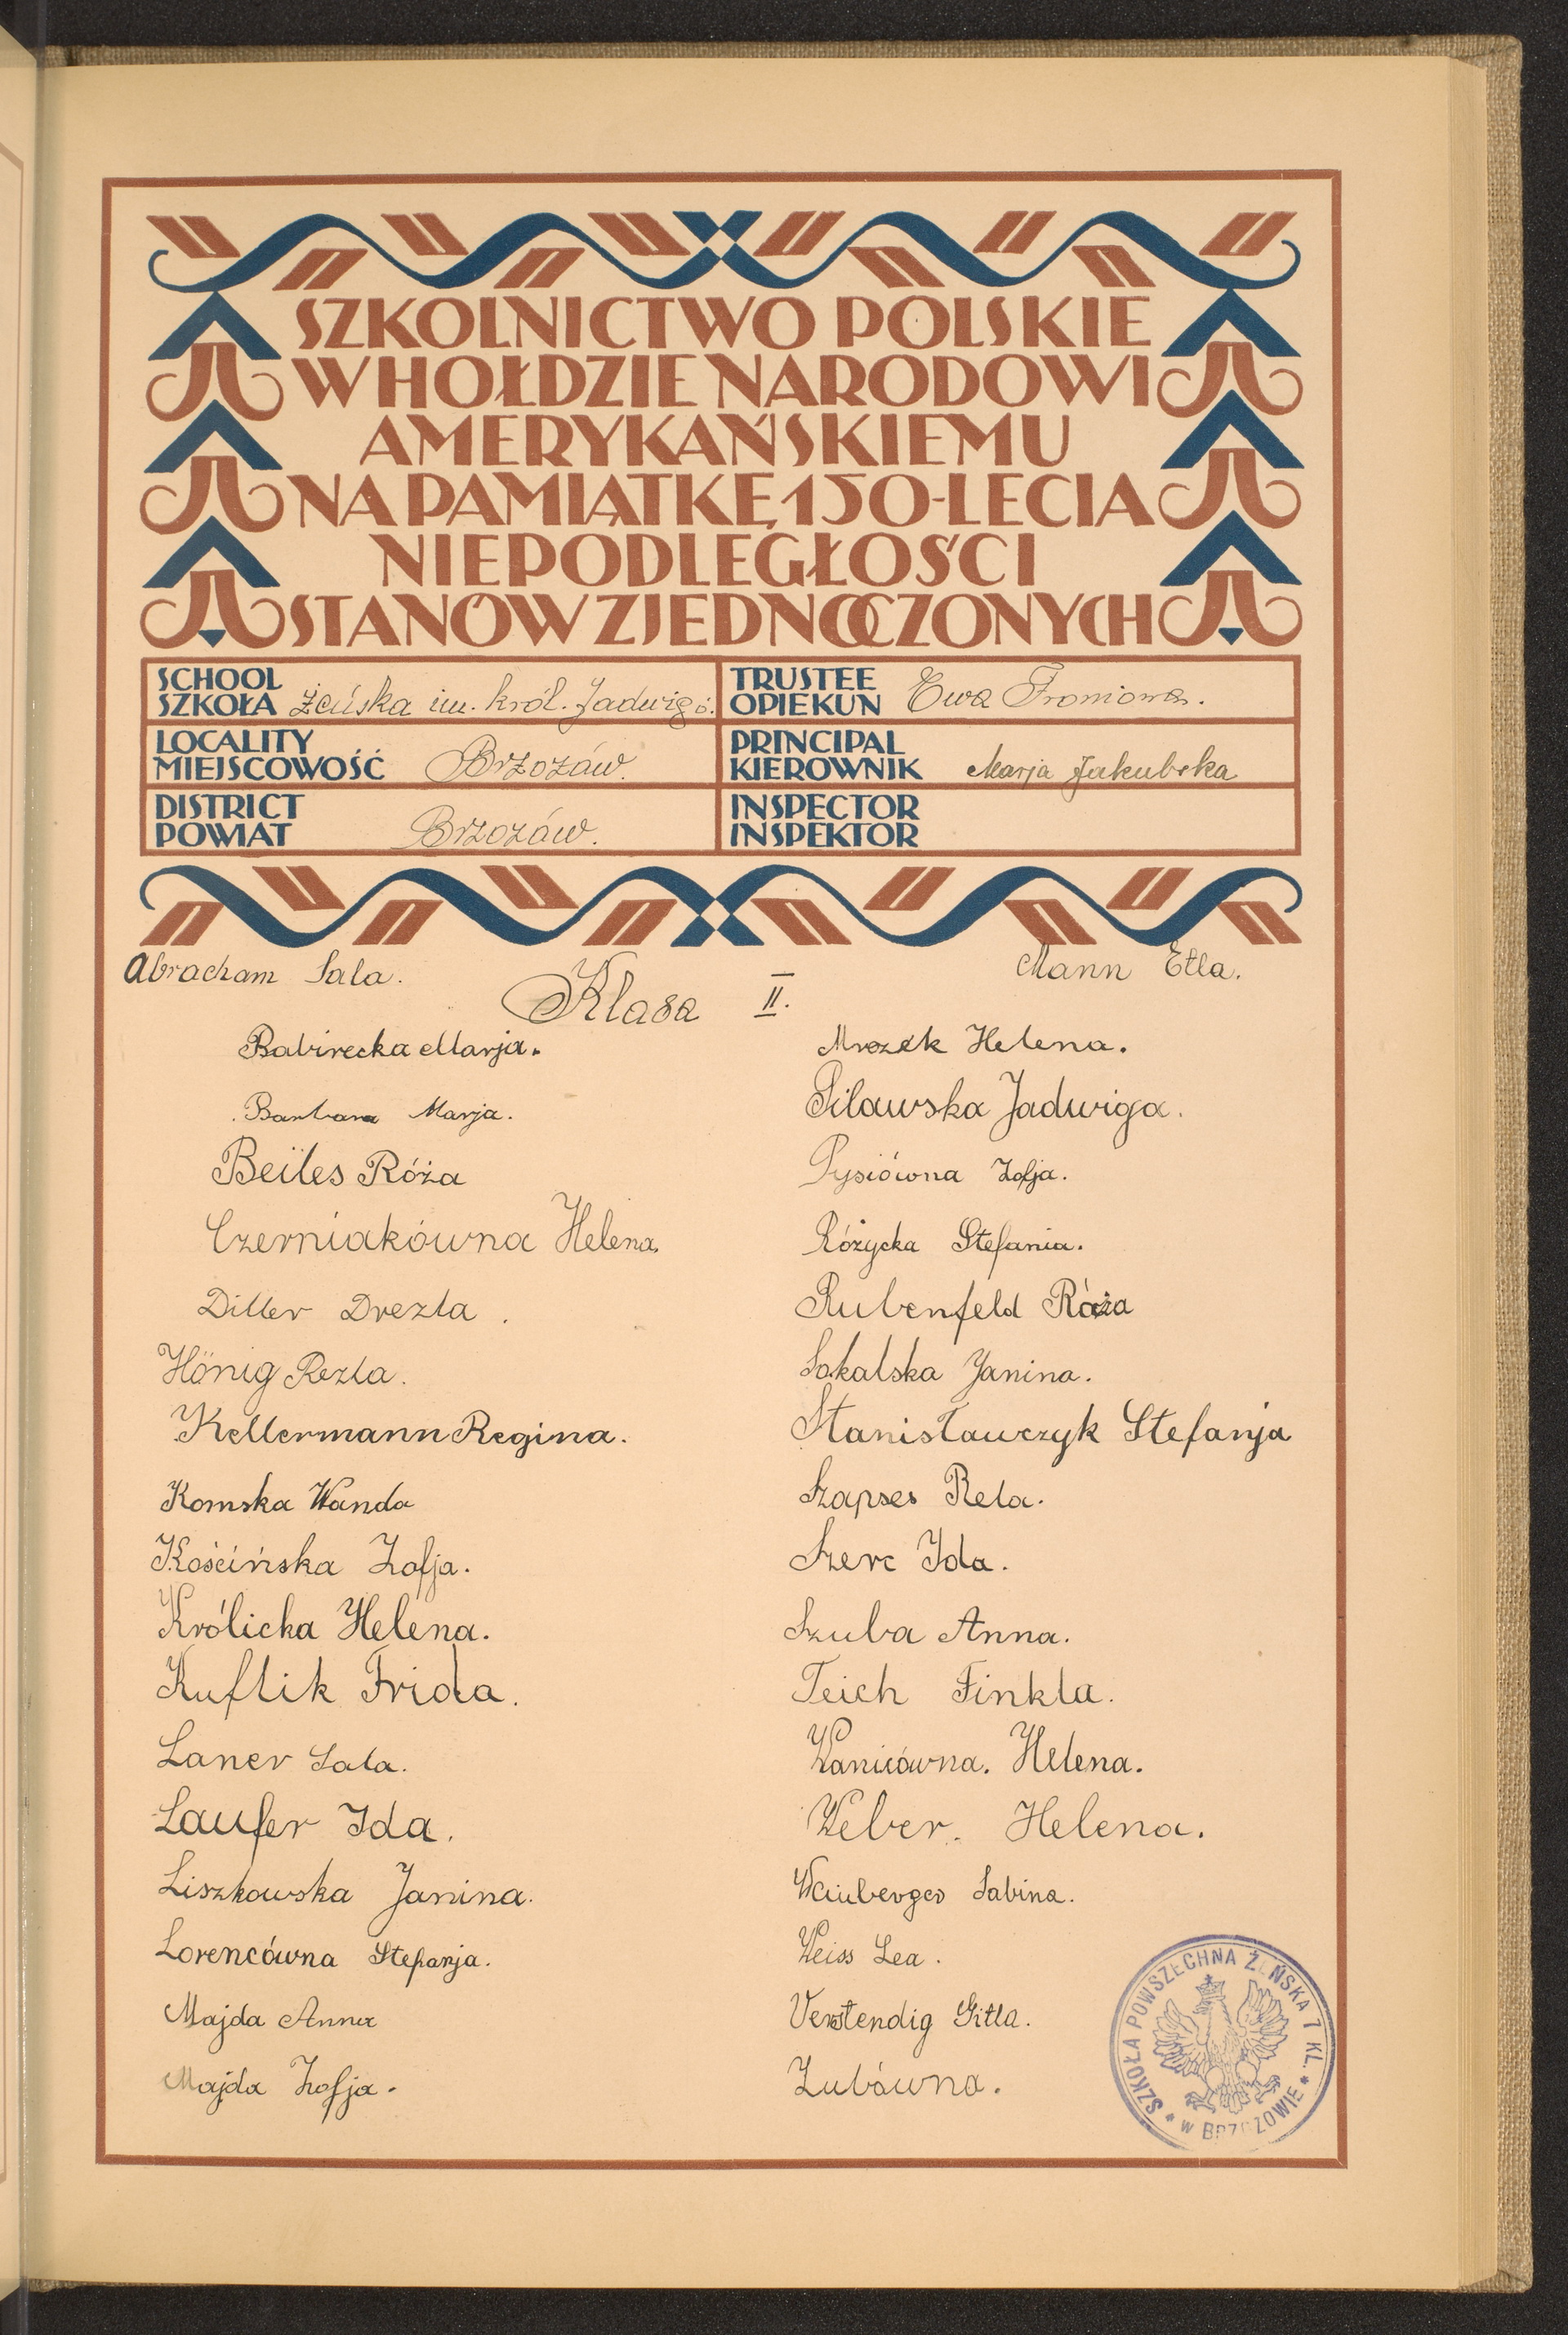 SZKOLNICTWO POLSKIE
W HOŁDZIE NARODOWI
AMERYKAŃSKIEMU
NA PAMIĄTKĘ 150-LECIA
NIEPODLEGŁOŚCI
STANÓW ZJEDNOCZONYCH
SCHOOL
SZKOŁA żeńska im. król. Jadwigi.
TRUSTEE
OPIEKUN Ewa Froniowa.
LOCALITY
MIEJSCOWOŚĆ Brzozów.
PRINCIPAL
KIEROWNIK Marja Jakubska
DISTRICT
POWIAT Brzozów.
INSPECTOR
INSPEKTOR
Abracham Sala.
Klasa II.
Babirecka Marja.
Barbara Marja.
Beiles Róża
Czerniakówna Helena.
Diller Drezla.
Hönig Rezla.
Kellermann Regina.
Komska Wanda
Kościńska Zofja.
Królicka Helena.
Kuflik Frida.
Laner Sala.
Laufer Ida.
Liszkowska Janina.
Lorencówna Stefanja.
Majda Anna
Majda Zofja.
Mann Etla.
Mrozek Helena.
Pilawska Jadwiga.
Pysiówna Zofja.
Różycka Stefania.
Rubenfeld Róża
Sokalska Janina.
Stanisławczyk Stefanja
Szapses Rela.
Szerc Ida.
Szuba Anna.
Teich Finkla.
Wanicówna. Helena.
Weber. Helena.
Weinberger Sabina.
Weiss Lea.
Verstendig Gitla.
Zubówna.
SZKOŁA POWSZECHNA ŻEŃSKA 7 KL. * W BRZOZOWIE *